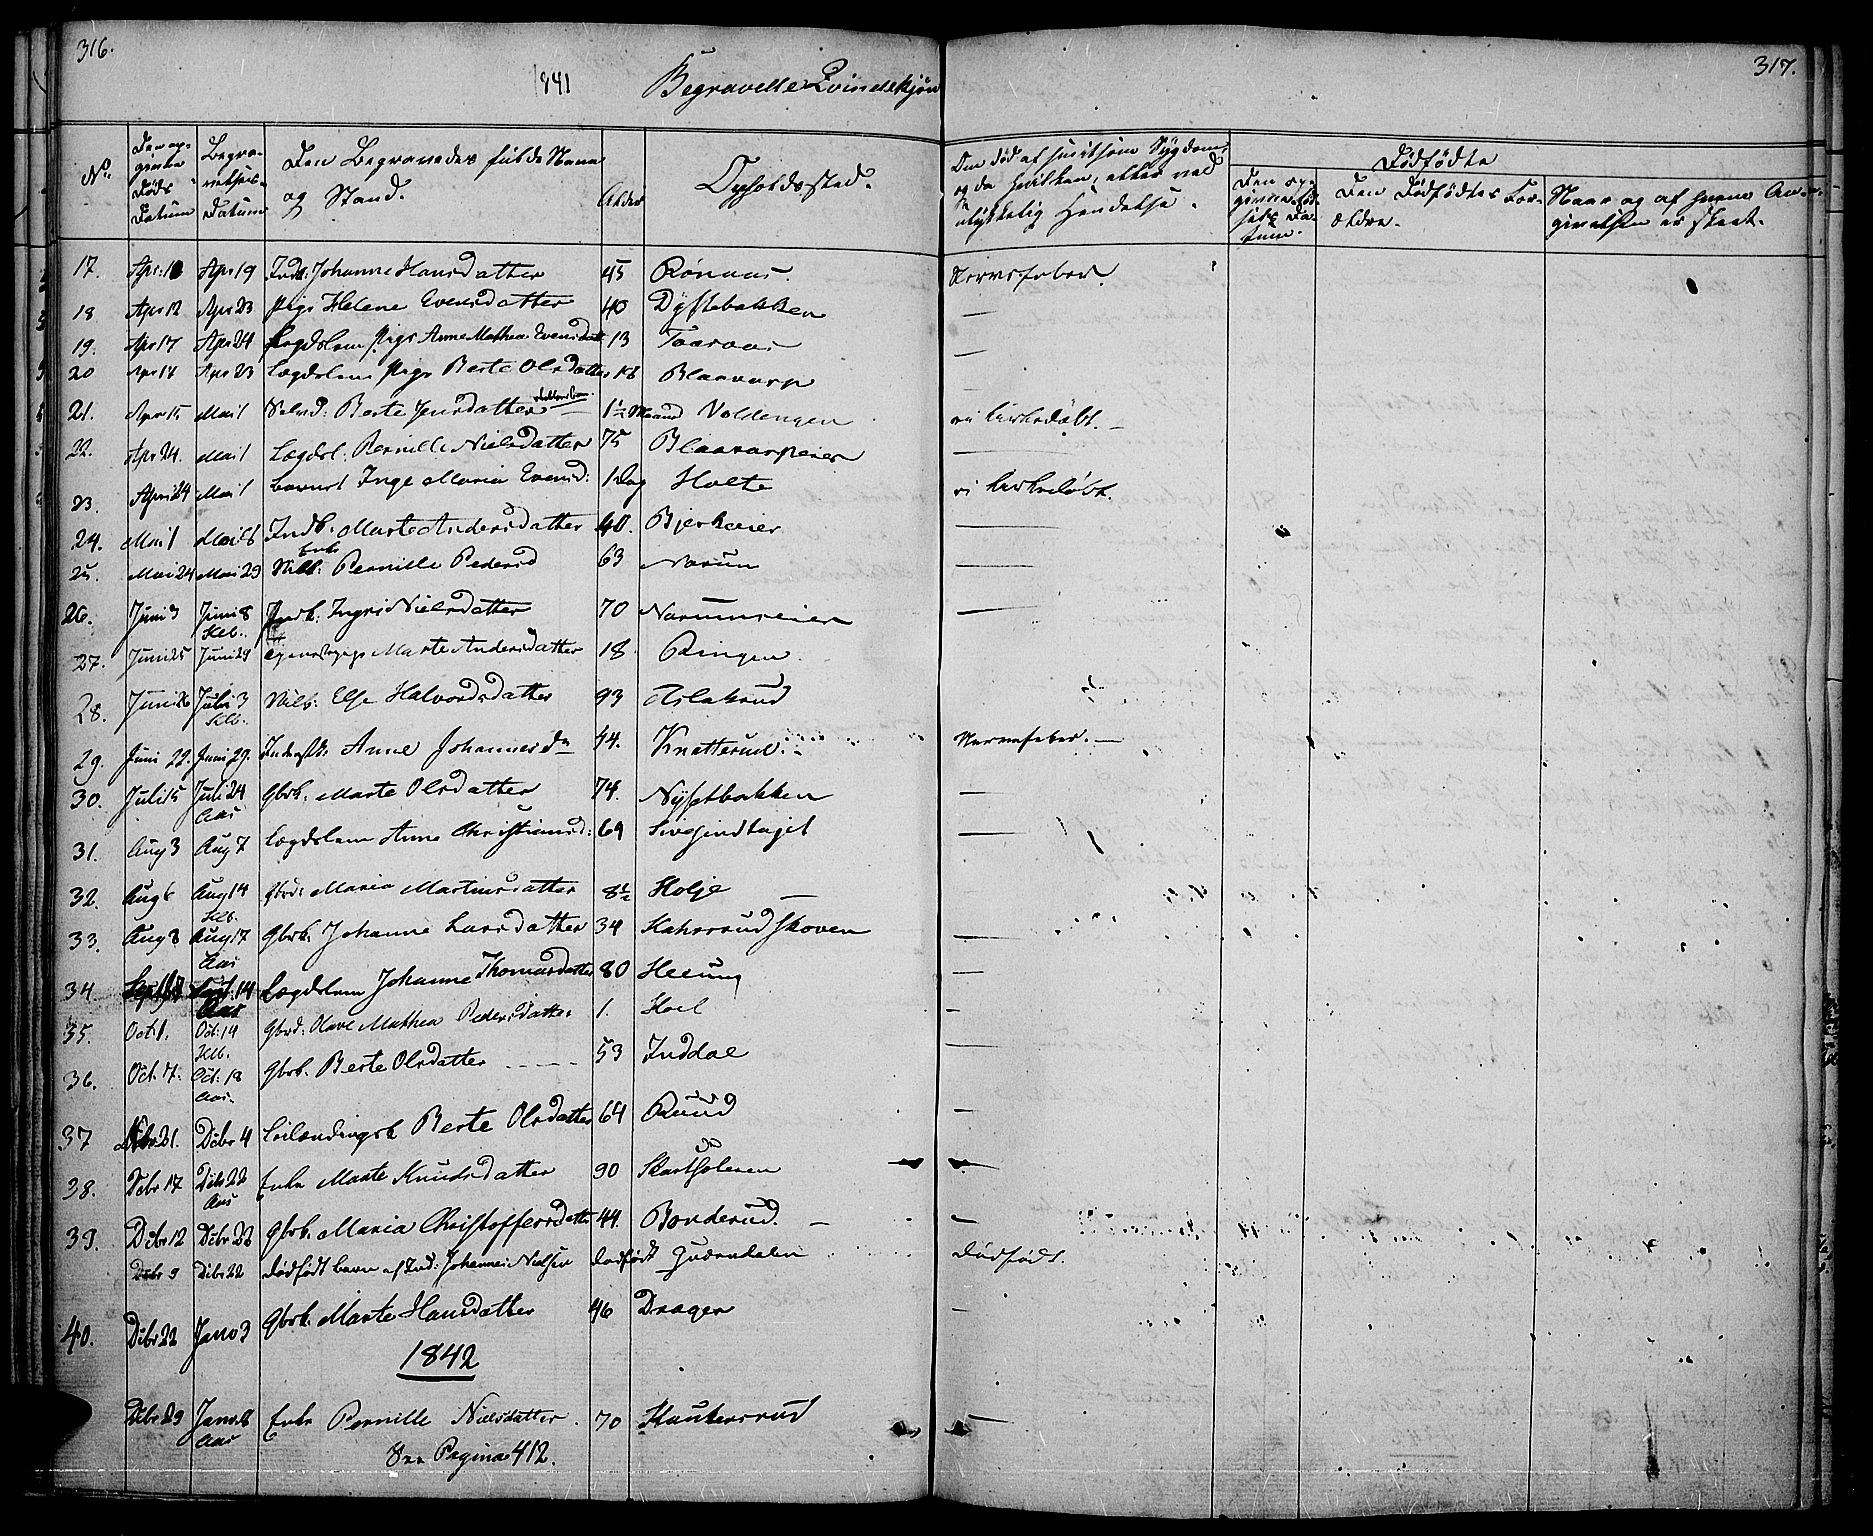 316.
317.
1841 Begravelle Qvindekjøn
No. Den opgivne Døds Datum Begravelses Datum Den Begravedes fulde Navn og Stand. Alder Opholdssted. Den død af smitsom Sygdom, og da hvilken, eller ved ulykkelig Hændelse. Dødfødte Den opgivne Datum. Den Dødfødtes Forældre. Naar og af hvem Angivelsen er skeet.
17. Apr: Apr 19 Inds. Johanne Hansdatter 45 Rønaas. Nervefeber.
18 Apr 12 Apr 23 Pige Helene Evensdatter 40 Dystebakken —
19. Apr 17 Apr 24 Lægdslem Pige Anne Mathea Evensdatt 13 Taaraas —
20 Apr 14 Apr 23 Lægdslem Pige Berte Olsdatter 18 Blaavarp
21. Apr 15 Mai 1 Berte Jensdatter 1½ Maaned Voldengen ei kirkedøbt.
22. Apr 24. Mai 1 Lægdsl: Pernille Nielsdatter 75 Blaavarpeier
23. April 24 Mai 1 Barnet Inge Maria Evensd: 1 Dag Holte ei kirkedøbt.
24. Mai 1 Mai 8 Indk. Marte Andersdatter 40. Bjerkeeier —
25. Mai 24 Mai 29 Enke Pernille Pedersd 63 Narum —
26. Juni 3 Juni 8 Indk. Ingri Nielsdatter 70 Narumseier —
27. Juni 25 Juni 29 Marte Andersdatter 18 Ringen.
28. Juni 26 Juli 3 Else Halvorsdatter 93 Aslakrud
29. Juni 22. Juni 29. Inderstk. Anne Johannesd 44. Knatterud. Nervefeber.
30. Juli 15 Juli 24 Aas Gbrk. Marte Olsdatter 74. Nystbakken —
31. Aug 3 Aug 7 Lægdslem Anne Christiansd: 69 Sivesindhaget —
32. Aug 6 Aug 14 Gbrd: Maria Martinsdatter 8½ Holje —
33. Aug 8 Aug 17 Aas Gbrk. Johanne Larsdatter 34 Kahrsrudskoven —
34. Sept. 14 Aas Lægdslem Johanne Thomasdatter 80 Heeung —
35. Oct: 1. Oct: 14 Gbrd: Olave Mathea Pedersdatter 1. Hoel —
36. Oct. 7. Oct. 18 Aas. Gbrk. Berte Olsdatter 53 Inddal —
37 21. Dcbr 4 Leilændingsk Berte Olsdatter 64 Ruud —
38. Dcbr 17 Dcbr 22 Aas Enke Marte Knudsdatter 90 Skartsæteren
39. Dcbr 12 Dcbr 22 Gbrk. Maria Christoffersdatte 44. Borderud. —
Dcbr 9 Dcbr 22 Dødfødt barn af Ind: Johannes Nielsen dødfødt dødfødt.
40. Dcbr 22 Janv 3 Gbrk. Marte Hansdatter 46 Drager —
1842
Dcbr 29 Janv 8 Aas Enke Pernille Nielsdatter. 70 Haukersrud —
See Pagina 412.